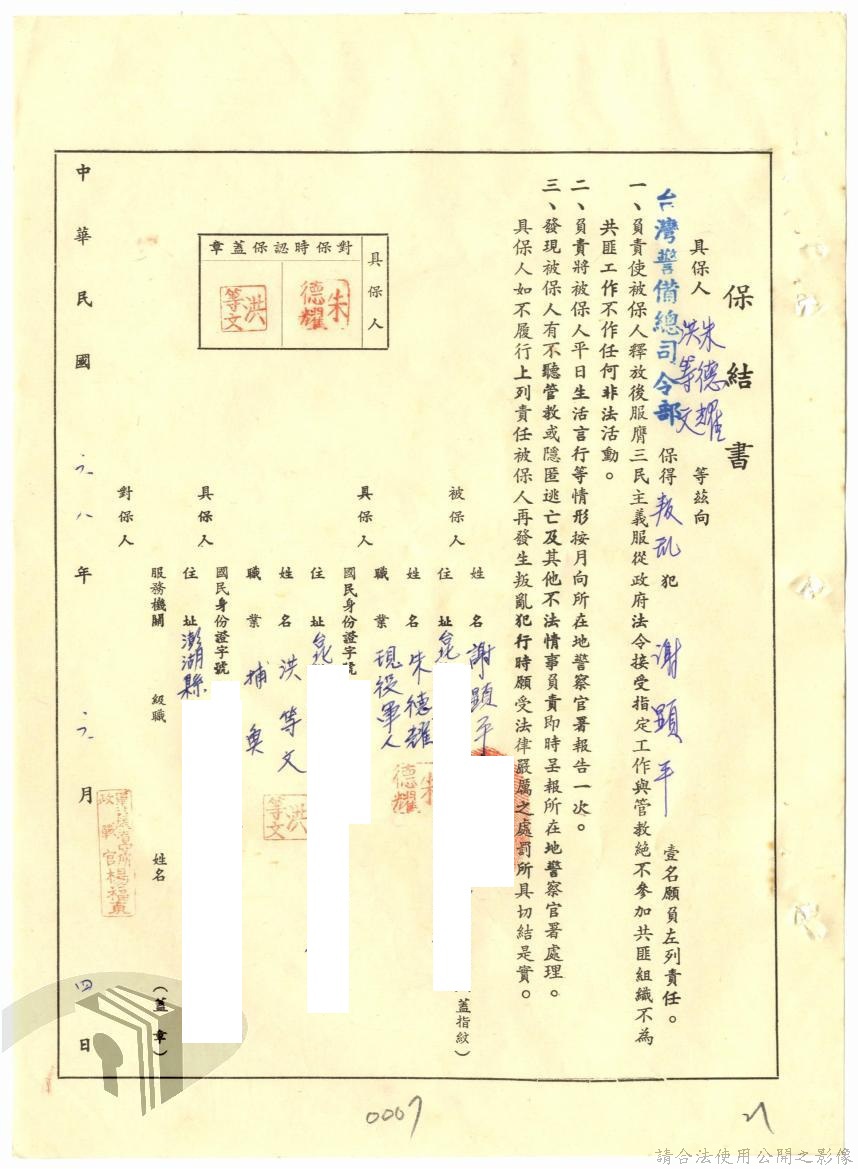 保結書
具保人 朱德耀 洪等文 等茲向
台灣警備總司令部 保得 叛乱 犯 謝顕平 壹名願負左列責任。
一、負責使被保人釋放後服膺三民主義服從政府法令接受指定工作與管教絕不參加共匪組織不為
共匪工作不作任何非法活動。
二、負責將被保人平日生活言行等情形按月向所在地警察官署報告一次。
三、發現被保人有不聽管教或隱匿逃亡及其他不法情事負責即時呈報所在地警察官署處理。
具保人如不履行上列責任被保人再發生叛亂犯行時願受法律嚴厲之處罰所具切結是實。
具保人
對保時認保蓋章
朱德耀
洪等文
被保人 姓名 謝顕平
住址 蓋指紋)
具保人 姓名 朱德耀
朱德耀
職業 現役軍人
國民身份證字號
住址
具保人 姓名 洪等文
洪等文
職業 捕魚
國民身份證字號
住址 澎湖縣
對保人 服務機關 級職 姓名 (蓋章)
中華民國 六八年 六月 四日
0007
21
請合法使用公開之影像